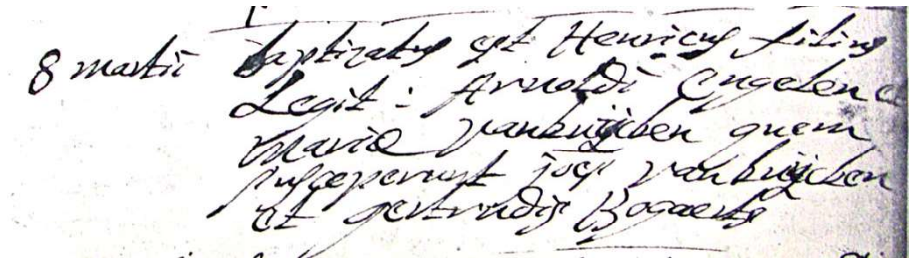 8 martii baptizatus est Henricus filius
Legit: Arnoldi Engelen et
Marie vanbuijcken quem
susceperunt joes vanbuijcken
et gertrudis Bogaerts